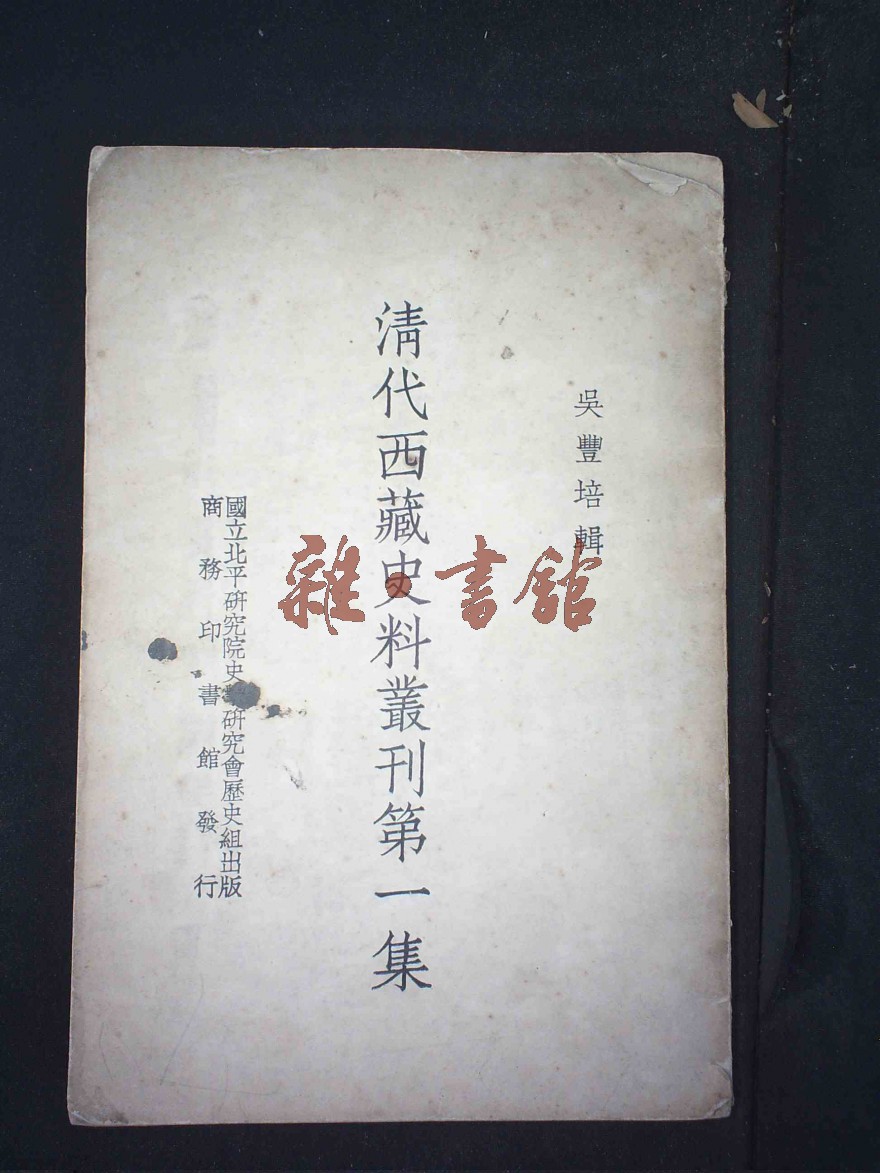 吳豐培輯
清代西藏史料叢刊第一集
國立北平研究院史學研究會歷史組出版
商務印書館發行
雜·書館